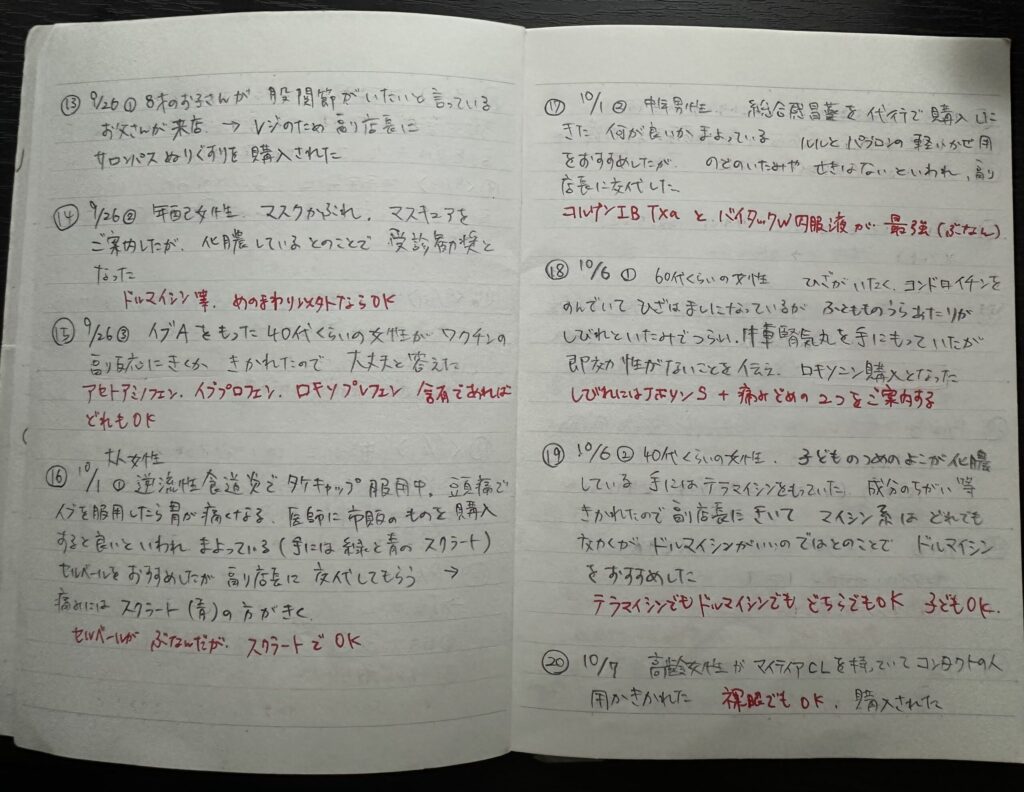 ⑬ 9/26 ① 8才のお子さんが 股関節がいたいと言っている
お父さんが来店 → レジのため副店長に
サロンパスぬりぐすりを購入された
⑭ 9/26 ② 年配女性. マスクかぶれ. マスキュアを
ご案内したが、化膿しているとのことで 受診勧奨と
なった
ドルマイシン等. めのまわりンメタトならOK
⑮ 9/26 ③ イブAをもった40代くらいの女性が ワクチンの
副反応にきくか きかれたので 大丈夫と答えた
アセトアミノフェン. イブプロフェン. ロキソプロフェン 含有であれば
どれもOK
大人女性
⑯ 10/1 ① 逆流性食道炎でタケキャップ服用中. 頭痛で
イブを服用したら胃が痛くなる. 医師に市販のものを購入
すると良いといわれ まよっている (手には緑と青のスクラート)
セルベールをおすすめしたが 副店長に 交代してもらう →
痛みには スクラート (青) の方がきく
セルベールが ぶなんだが、スクラートでOK
⑰ 10/1 ② 中年男性. 総合感冒薬を代行で購入しに
きた 何が良いかまよっている ルルとパブロンの軽いかぜ用
をおすすめしたが. のどのいたみや せきはないといわれ、副
店長に交代した
コルゲンIB TXα と バイタックW内服液が 最強 (ぶなん)
⑱ 10/6 ① 60代くらいの女性 ひざがいたく、コンドロイチンを
のんでいて ひざはましになっているが ふとももうらあたりが
しびれといたみでつらい. 牛車腎気丸を手にもっていたが
即効性がないことを伝え. ロキソニン購入となった
しびれには + 痛みどめの2つをご案内する
⑲ 10/6 ② 40代くらいの女性. 子どものつめのよこが化膿
している 手にはテラマイシンをもっていた 成分のちがい等
きかれたので副店長にきいて マイシン系はどれでも
効くがドルマイシンがいいのではとのことで ドルマイシン
をおすすめした
テラマイシンでもドルマイシンでも どちらでもOK 子どもOK.
⑳ 10/7 高齢女性がマイティアCLを持っていてコンタクトの人
用かきかれた 裸眼でもOK. 購入された